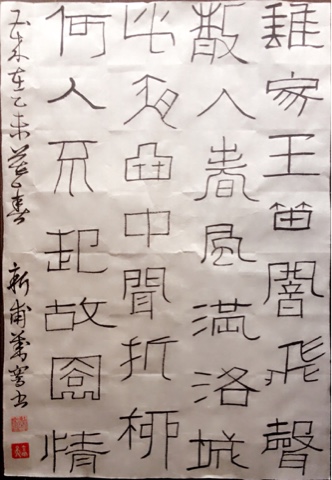 誰家玉笛闇飛聲
散入春風滿洛城
此夜曲中聞折柳
何人不起故園情
在乙未春 新甫